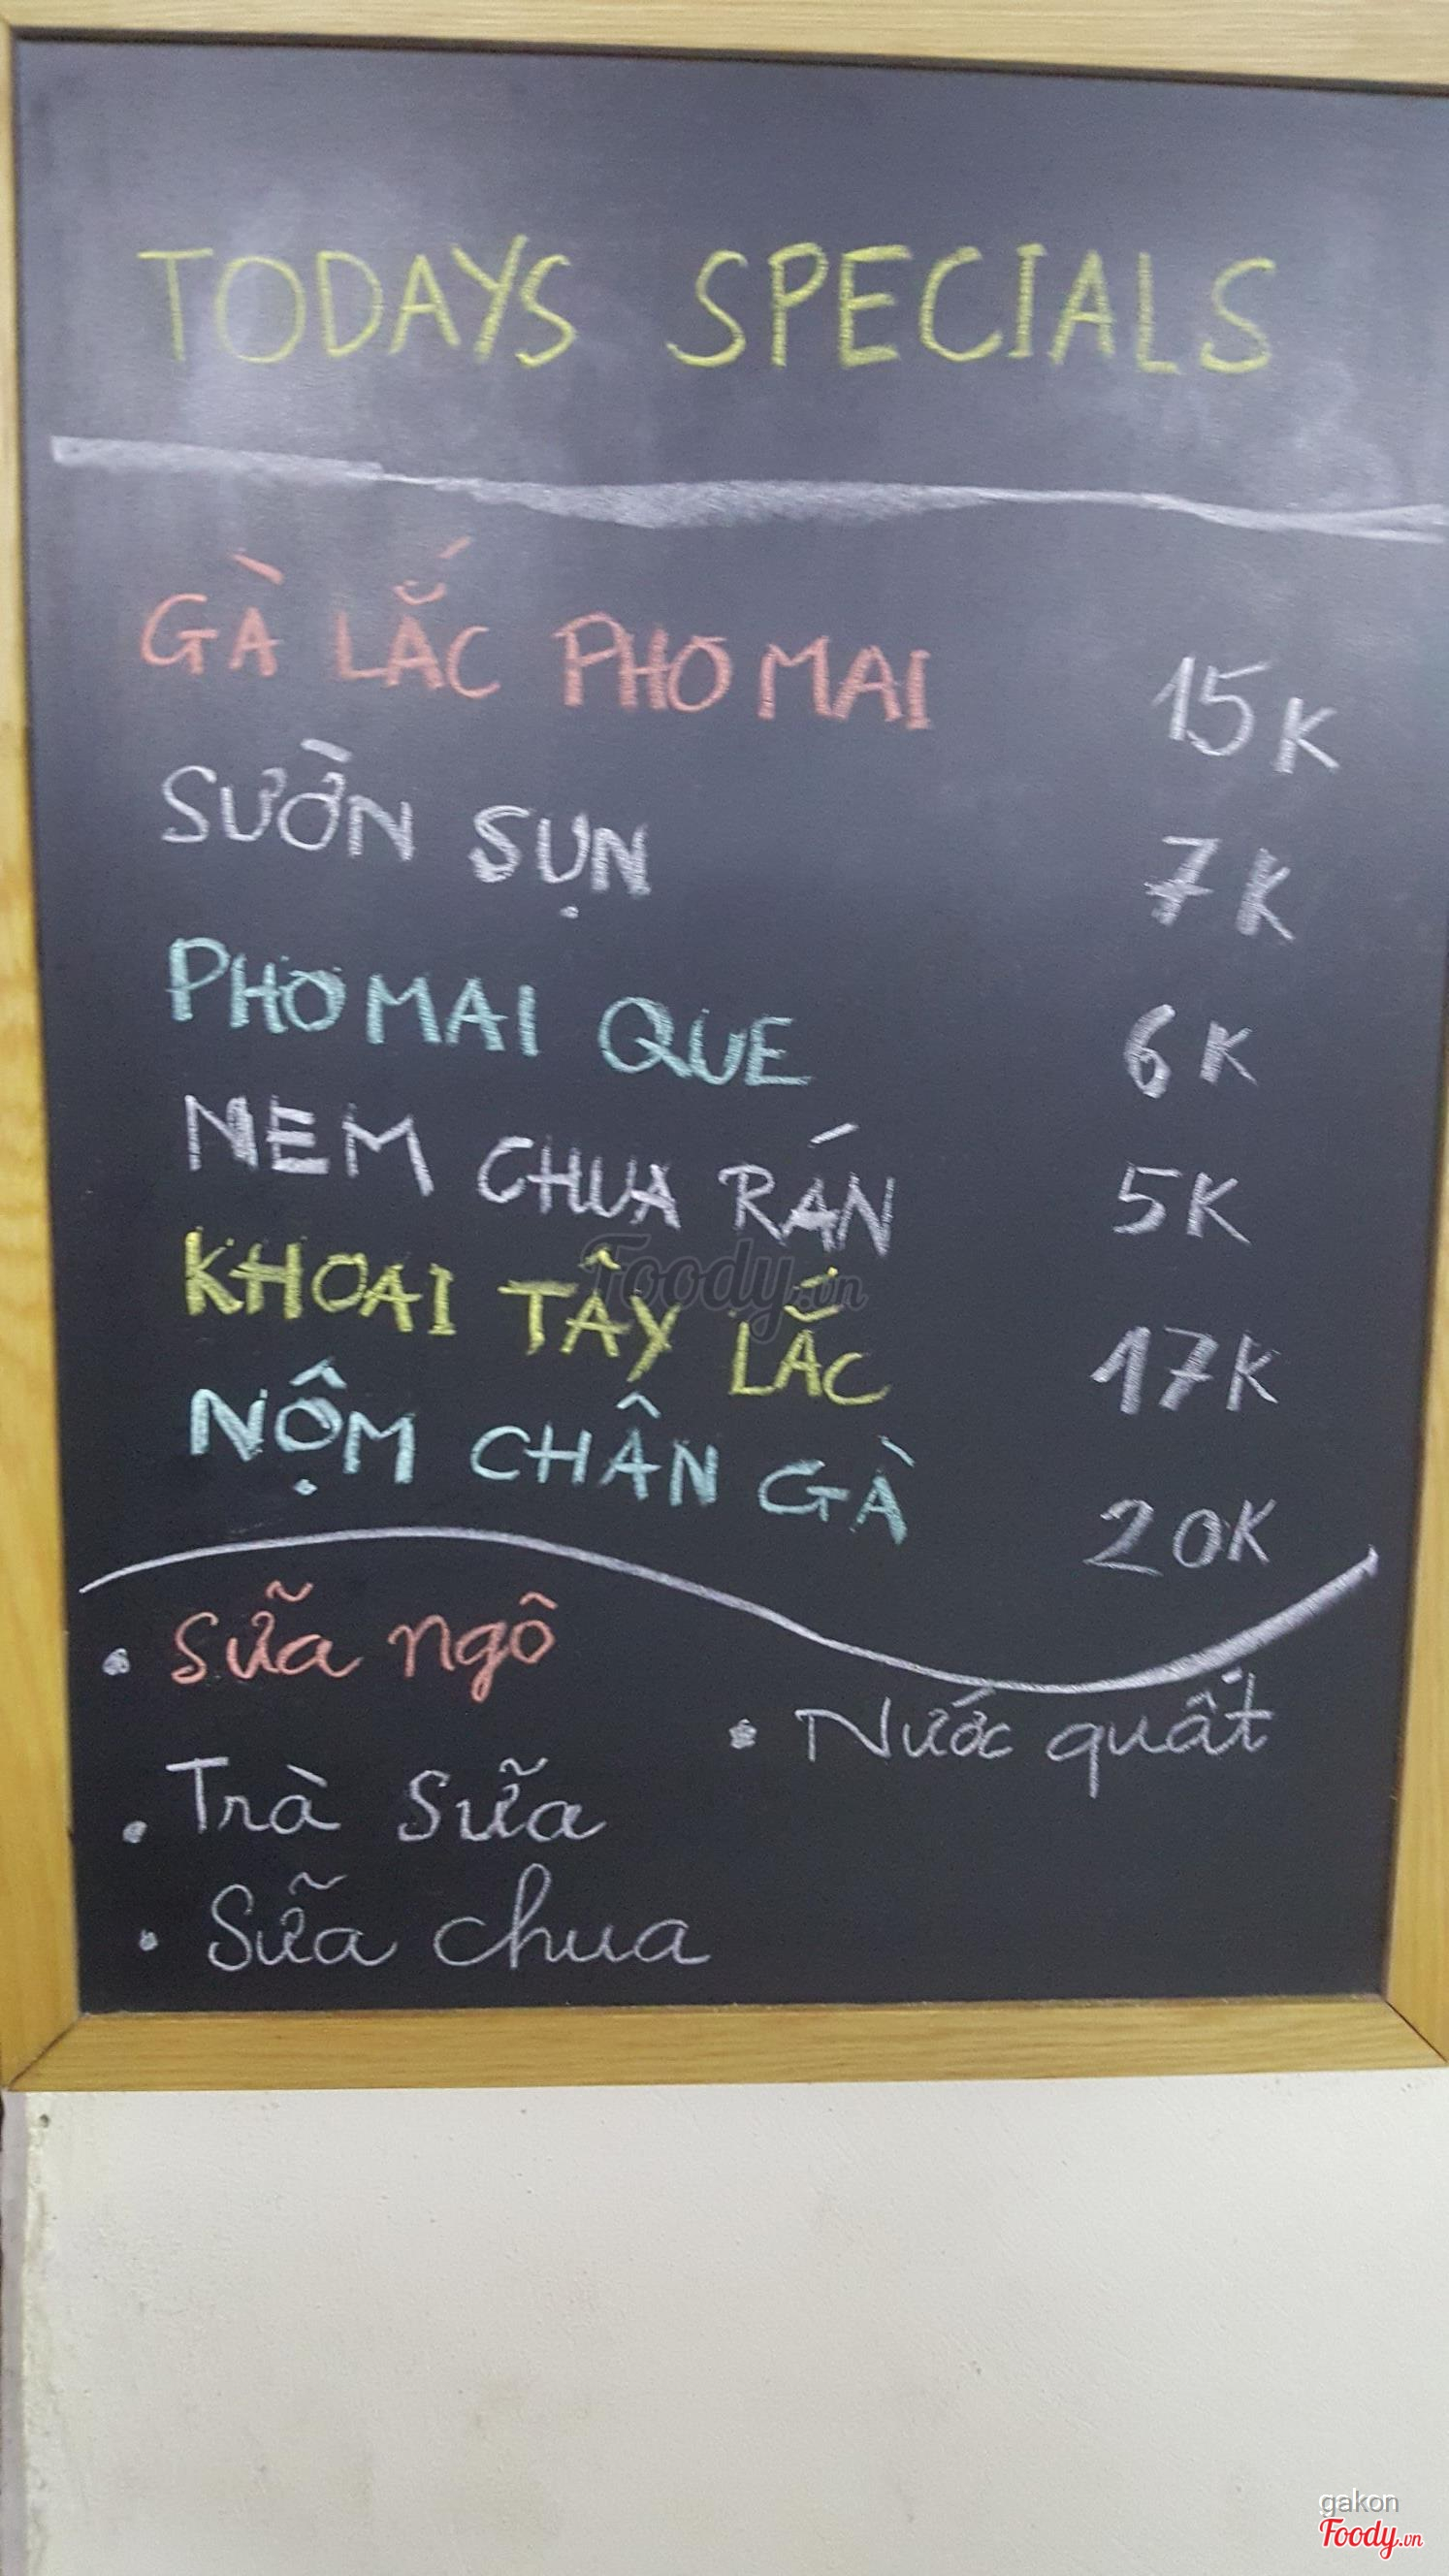 TODAYS SPECIALS
GÀ LẮC PHOMAI 15K
SƯỜN SỤN 7K
PHOMAI QUE 6K
NEM CHUA RÁN 5K
KHOAI TÂY LẮC 17K
NỘM CHÂN GÀ 20K
• Sữa ngô
• Nước quất
• Trà Sữa
• Sữa chua
Foody.vn
gakon
Foody.vn